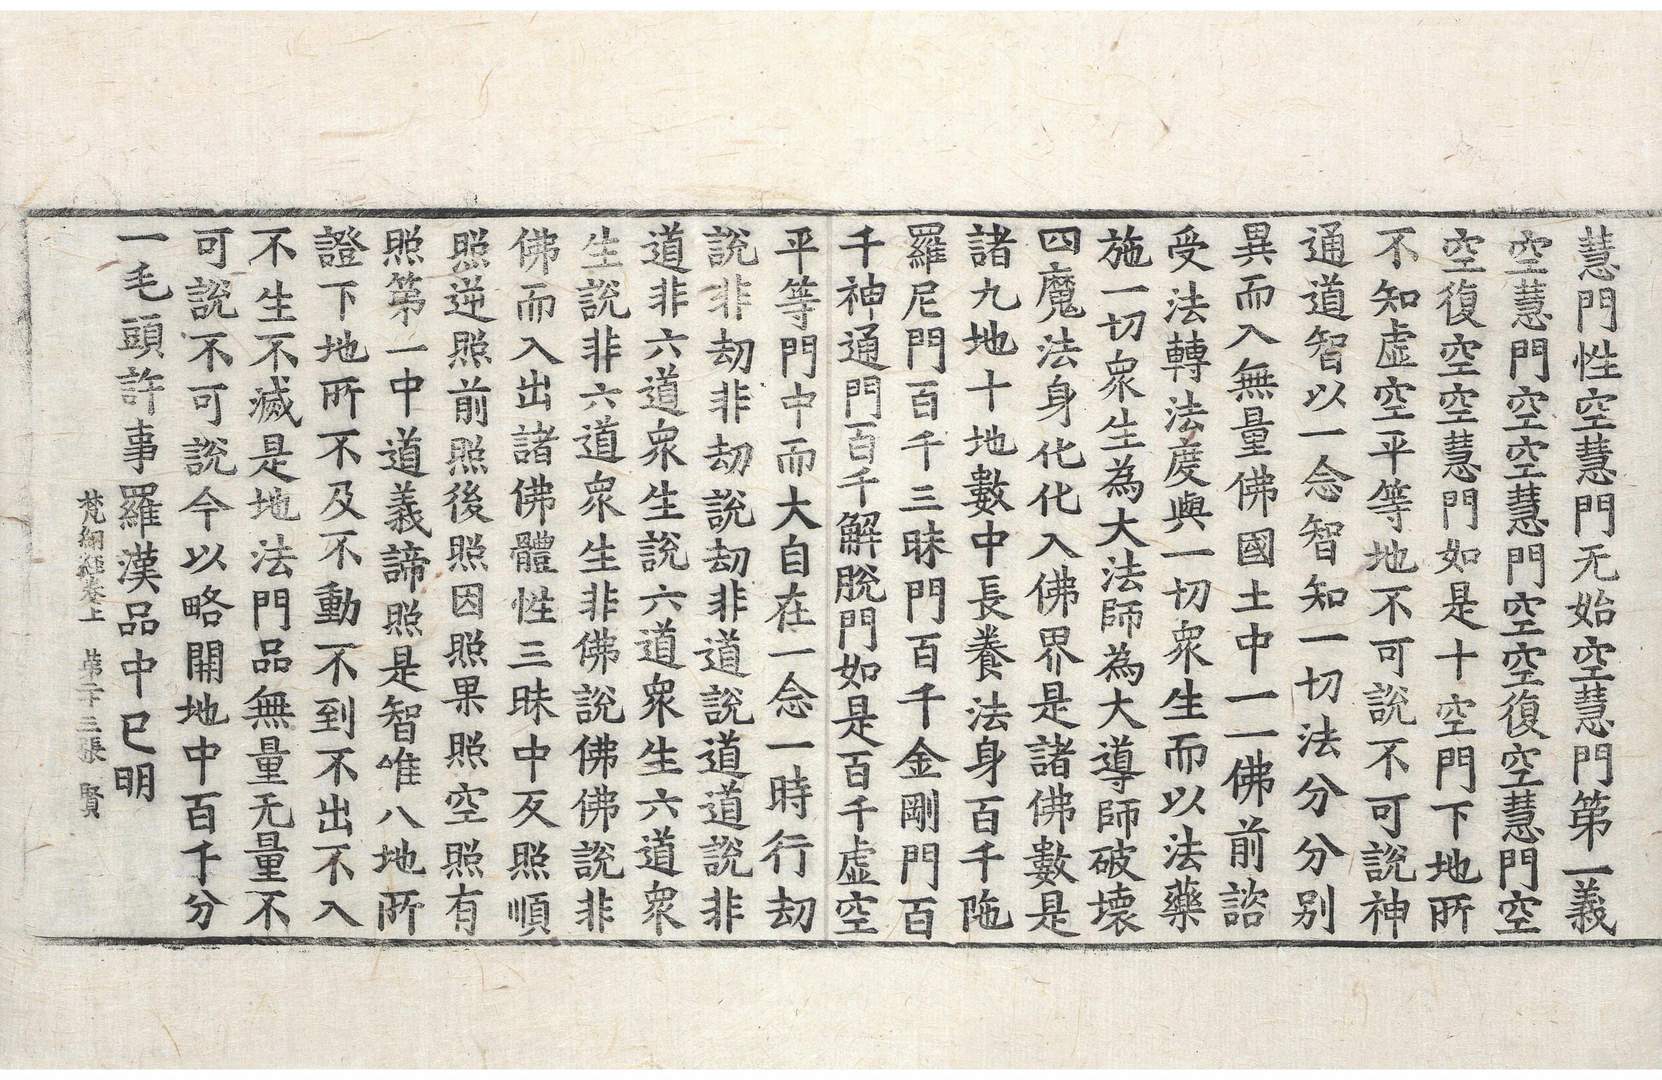 慧門性空慧門无始空慧門第一義
空慧門空空慧門空空復空慧門空
空復空空慧門如是十空門下地所
不知虛空平等地不可說不可說神
通道智以一念智知一切法分分別
異而入無量佛國土中一一佛前諮
受法轉法度與一切衆生而以法藥
施一切衆生為大法師為大導師破壞
四魔法身化化入佛界是諸佛數是
諸九地十地數中長養法身百千陁
羅尼門百千三昧門百千金剛門百
千神通門百千解脫門如是百千虛空
平等門中而大自在一念一時行劫
說非劫非劫說劫非道說道道說非
道非六道衆生說六道衆生六道衆
生說非六道衆生非佛說佛佛說非
佛而入出諸佛體性三昧中反照順
照逆照前照後照因照果照空照有
照第一中道義諦照是智唯八地所
證下地所不及不動不到不出不入
不生不滅是地法門品無量无量不
可說不可說今以略開地中百千分
一毛頭許事羅漢品中已明
梵網經卷上 第二十三張 賢